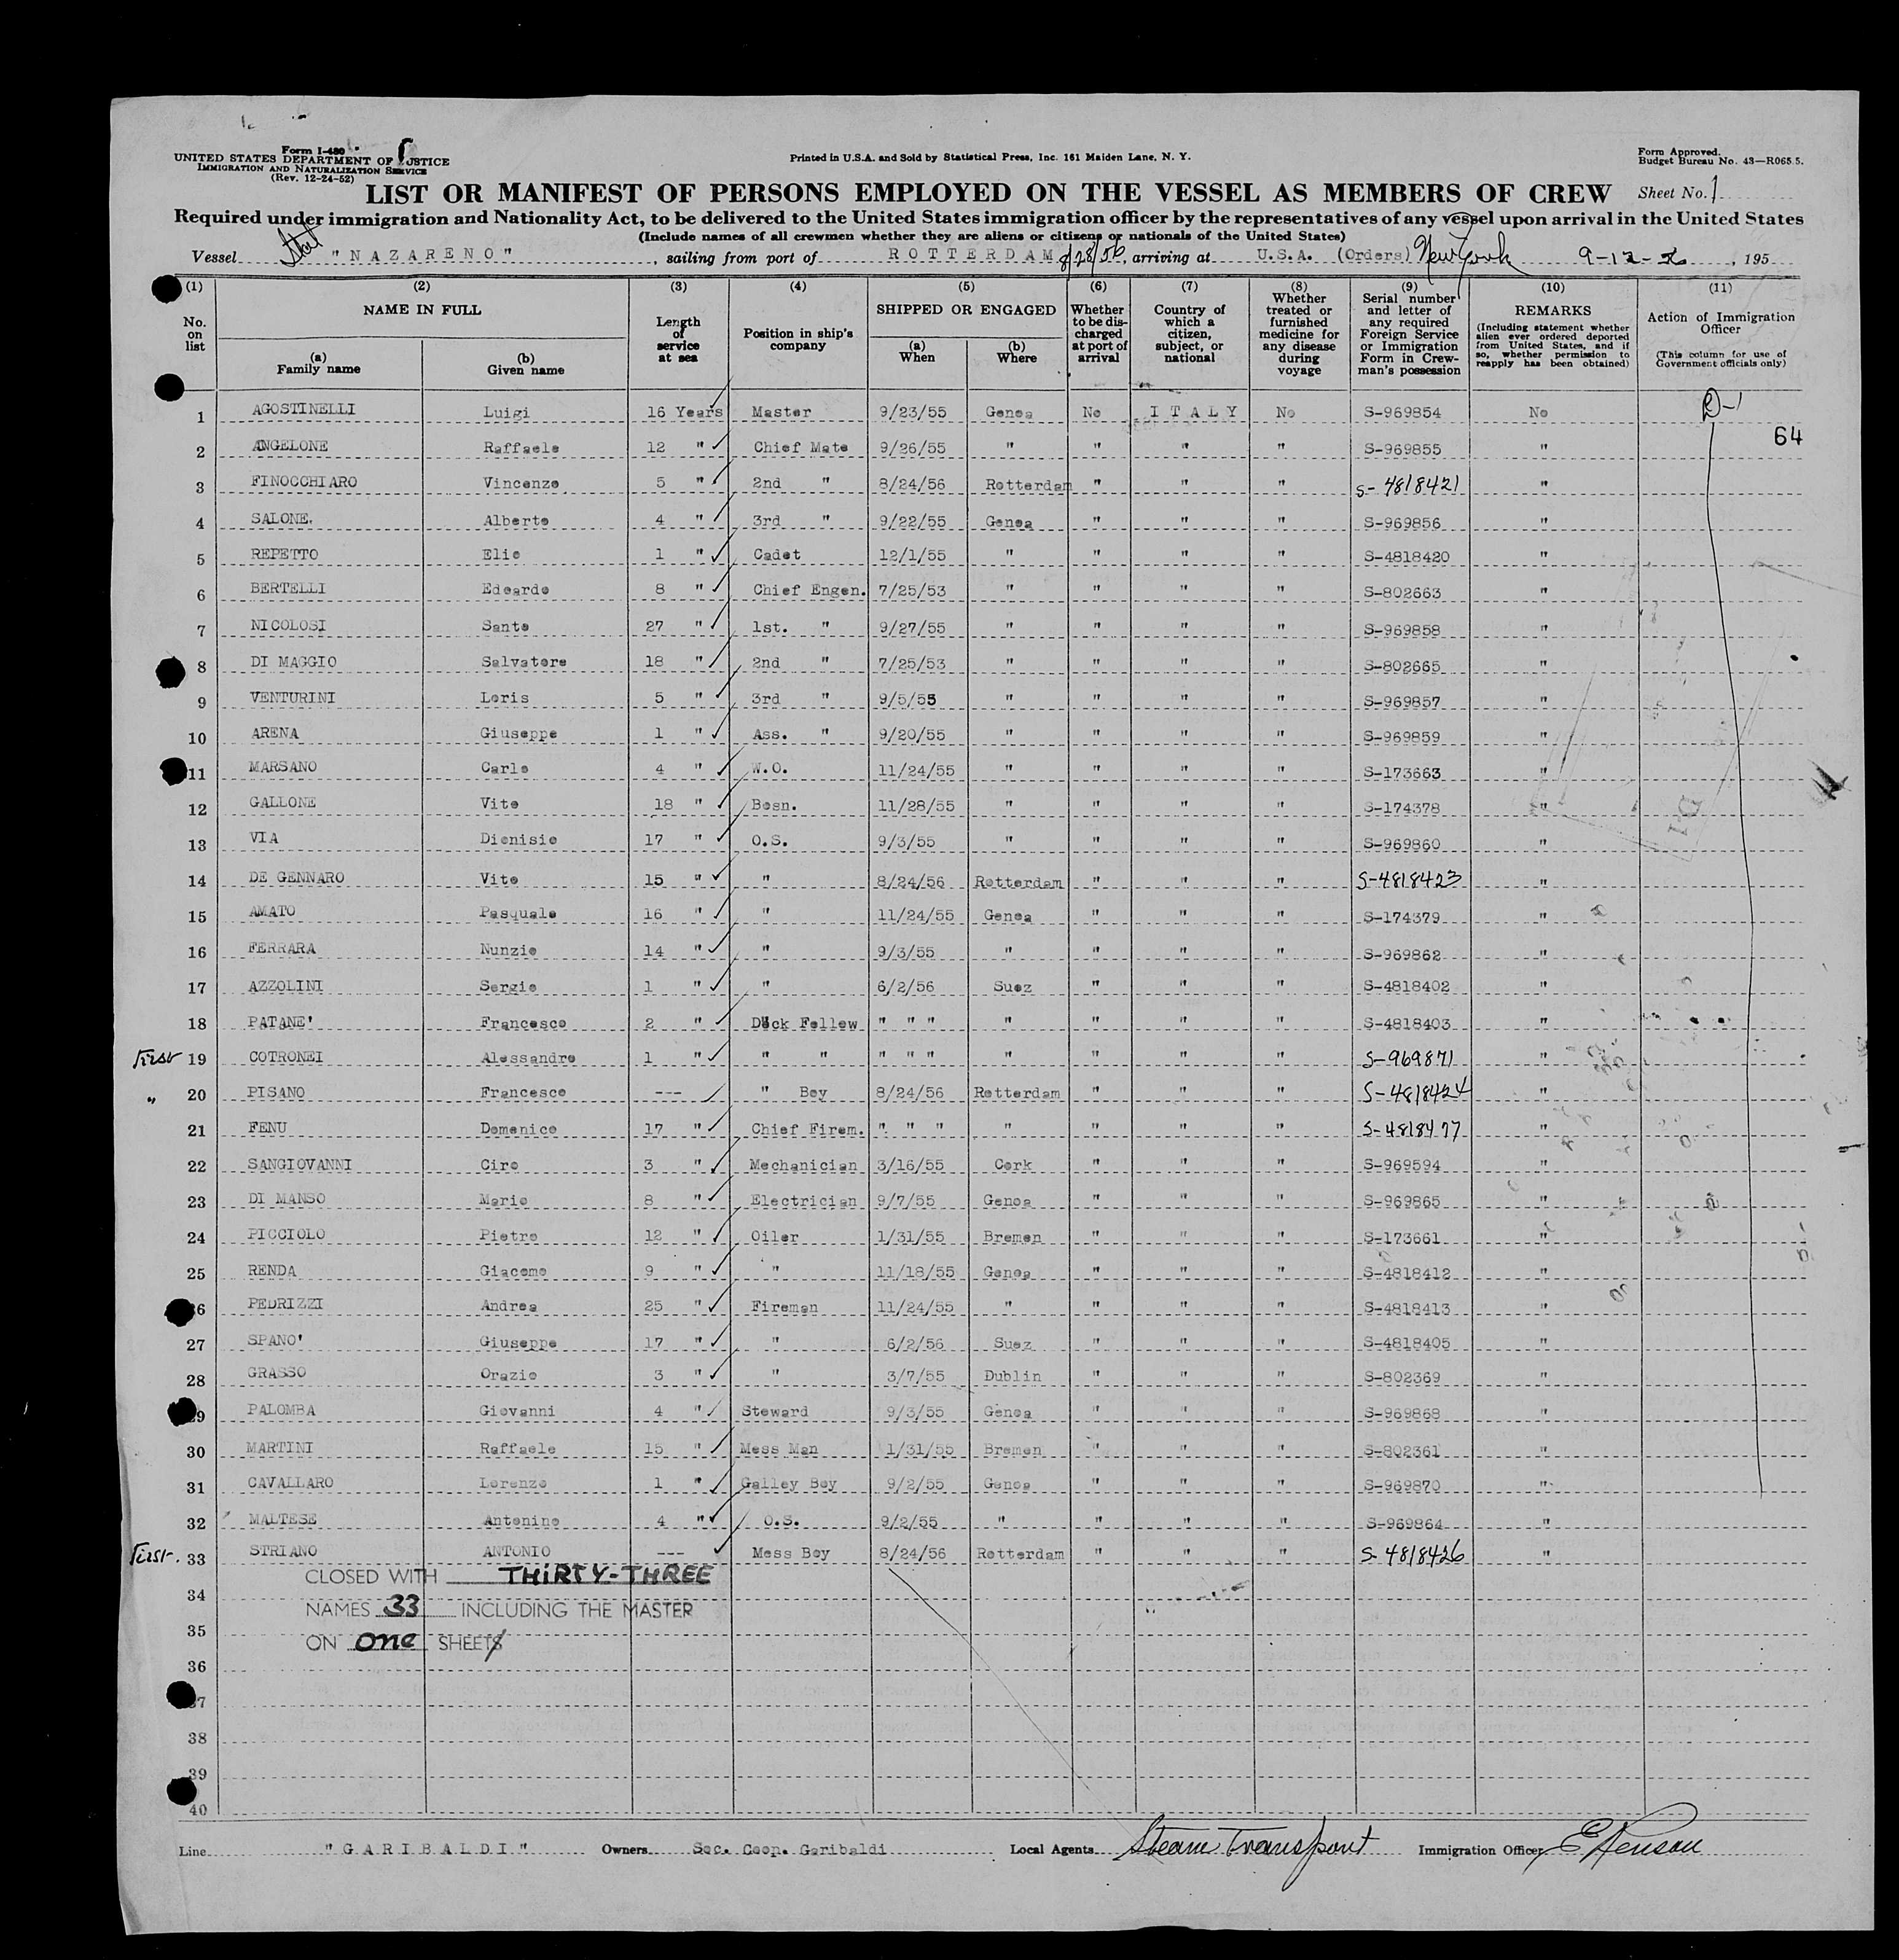 Form I-480
UNITED STATES DEPARTMENT OF JUSTICE
IMMIGRATION AND NATURALIZATION SERVICE
(Rev. 12-24-52)
Printed in U.S.A. and Sold by Statistical Press, Inc. 161 Maiden Lane, N. Y.
Form Approved.
Budget Bureau No. 43—R065.5.
LIST OR MANIFEST OF PERSONS EMPLOYED ON THE VESSEL AS MEMBERS OF CREW
Sheet No. 1
Required under immigration and Nationality Act, to be delivered to the United States immigration officer by the representatives of any vessel upon arrival in the United States
(Include names of all crewmen whether they are aliens or citizens or nationals of the United States)
Vessel "NAZARENO", sailing from port of ROTTERDAM 8/28/56, arriving at U.S.A. (Orders) New York 9-12-56, 195
(1) No. on list
(2) NAME IN FULL (a) Family name (b) Given name
(3) Length of service at sea
(4) Position in ship's company
(5) SHIPPED OR ENGAGED (a) When (b) Where
(6) Whether to be discharged at port of arrival
(7) Country of which a citizen, subject, or national
(8) Whether treated or furnished medicine for any disease during voyage
(9) Serial number and letter of any required Foreign Service or Immigration Form in Crewman's possession
(10) REMARKS (Including statement whether alien ever ordered deported from United States, and if so, whether permission to reapply has been obtained)
(11) Action of Immigration Officer (This column for use of Government officials only)
1 AGOSTINELLI Luigi 16 Years Master 9/23/55 Genoa No ITALY No S-969854 No D-1
64
2 ANGELONE Raffaele 12 " Chief Mate 9/26/55 " " " " S-969855 "
3 FINOCCHIARO Vincenzo 5 " 2nd " 8/24/56 Rotterdam " " " S-4818421 "
4 SALONE. Alberto 4 " 3rd " 9/22/55 Genoa " " " S-969856 "
5 REPETTO Elio 1 " Cadet 12/1/55 " " " " S-4818420 "
6 BERTELLI Edoardo 8 " Chief Engen. 7/25/53 " " " " S-802663 "
7 NICOLOSI Santo 27 " 1st. " 9/27/55 " " " " S-969858 "
8 DI MAGGIO Salvatore 18 " 2nd " 7/25/53 " " " " S-802665 "
9 VENTURINI Loris 5 " 3rd " 9/5/55 " " " " S-969857 "
10 ARENA Giuseppe 1 " Ass. " 9/20/55 " " " " S-969859 "
11 MARSANO Carlo 4 " W.O. 11/24/55 " " " " S-173663 "
12 GALLONE Vito 18 " Bosn. 11/28/55 " " " " S-174378 "
13 VIA Dionisio 17 " O.S. 9/3/55 " " " " S-969860 "
14 DE GENNARO Vito 15 " " 8/24/56 Rotterdam " " " S-4818423 "
15 AMATO Pasquale 16 " " 11/24/55 Genoa " " " S-174379 "
16 FERRARA Nunzio 14 " " 9/3/55 " " " " S-969862 "
17 AZZOLINI Sergio 1 " " 6/2/56 Suez " " " S-4818402 "
18 PATANE' Francesco 2 " Deck Fellow " " " " " " " S-4818403 "
First 19 COTRONEI Alessandro 1 " " " " " " " " " " S-969871 "
" 20 PISANO Francesco --- " Boy 8/24/56 Rotterdam " " " S-4818424 "
21 FENU Domenico 17 " Chief Firem. " " " " " " " S-4818477 "
22 SANGIOVANNI Ciro 3 " Mechanician 3/16/55 Cork " " " S-969594 "
23 DI MANSO Mario 8 " Electrician 9/7/55 Genoa " " " S-969865 "
24 PICCIOLO Pietro 12 " Oiler 1/31/55 Bremen " " " S-173661 "
25 RENDA Giacomo 9 " " 11/18/55 Genoa " " " S-4818412 "
26 PEDRIZZI Andrea 25 " Fireman 11/24/55 " " " " S-4818413 "
27 SPANO' Giuseppe 17 " " 6/2/56 Suez " " " S-4818405 "
28 GRASSO Orazio 3 " " 3/7/55 Dublin " " " S-802369 "
29 PALOMBA Giovanni 4 " Steward 9/3/55 Genoa " " " S-969868 "
30 MARTINI Raffaele 15 " Mess Man 1/31/55 Bremen " " " S-802361 "
31 CAVALLARO Lorenzo 1 " Galley Boy 9/2/55 Genoa " " " S-969870 "
32 MALTESE Antonino 4 " O.S. 9/2/55 " " " " S-969864 "
First. 33 STRIANO ANTONIO --- Mess Boy 8/24/56 Rotterdam " " " S-4818426 "
CLOSED WITH THIRTY-THREE
34
NAMES 33 INCLUDING THE MASTER
35
ON one SHEETS
36
37
38
39
40
Line "GARIBALDI" Owners Soc. Coop. Garibaldi Local Agents Steam Transport Immigration Officer